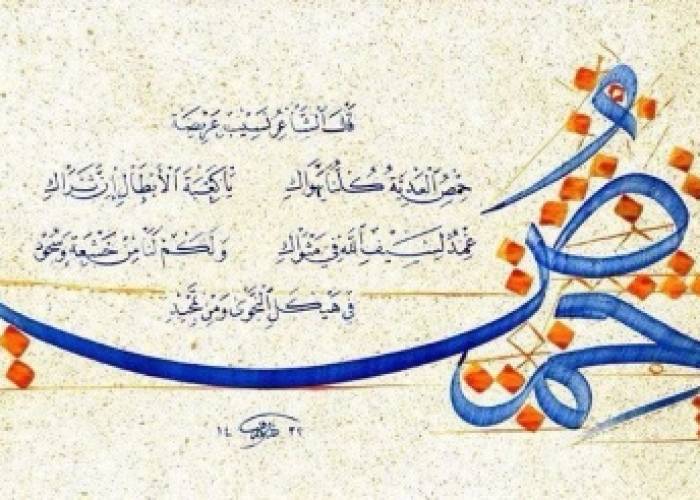 قال الشاعر نسيب عريضة
حمص العدية كلنا يهواك يا كعبة الأبطال إن ثراك
غمد لسيف الله في مثواك ولكم لنا من خشعة وسجود
في هيكل النجوى ومن تمجيد
حمص
١٤٣٢